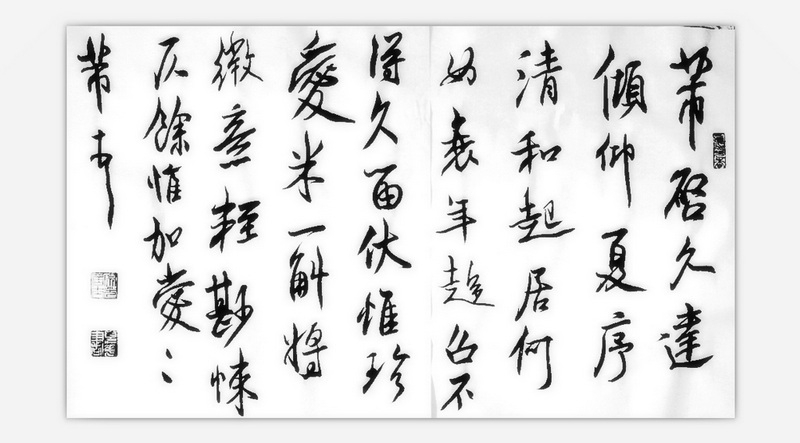 芾启久達
傾仰夏序
清和起居何
如衰年趍召不
得久留伏惟珍
愛米一斛將
微意輕鮮悚
仄餘惟加愛〻
芾頓首